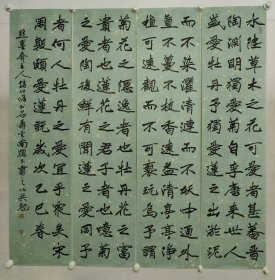 水陸草木之花可愛者甚蕃晉
陶淵明獨愛菊自李唐來世人
盛愛牡丹予獨愛蓮之出淤泥
而不染濯清漣而不妖中通外
直不蔓不枝香遠益清亭亭淨
植可遠觀而不可褻玩焉予謂
菊花之隱逸者也牡丹花之富
貴者也蓮花之君子者也噫菊
之愛陶後鮮有聞蓮之愛同予
者何人牡丹之愛宜乎衆矣宋
周敦頤愛蓮說歲次乙巳春